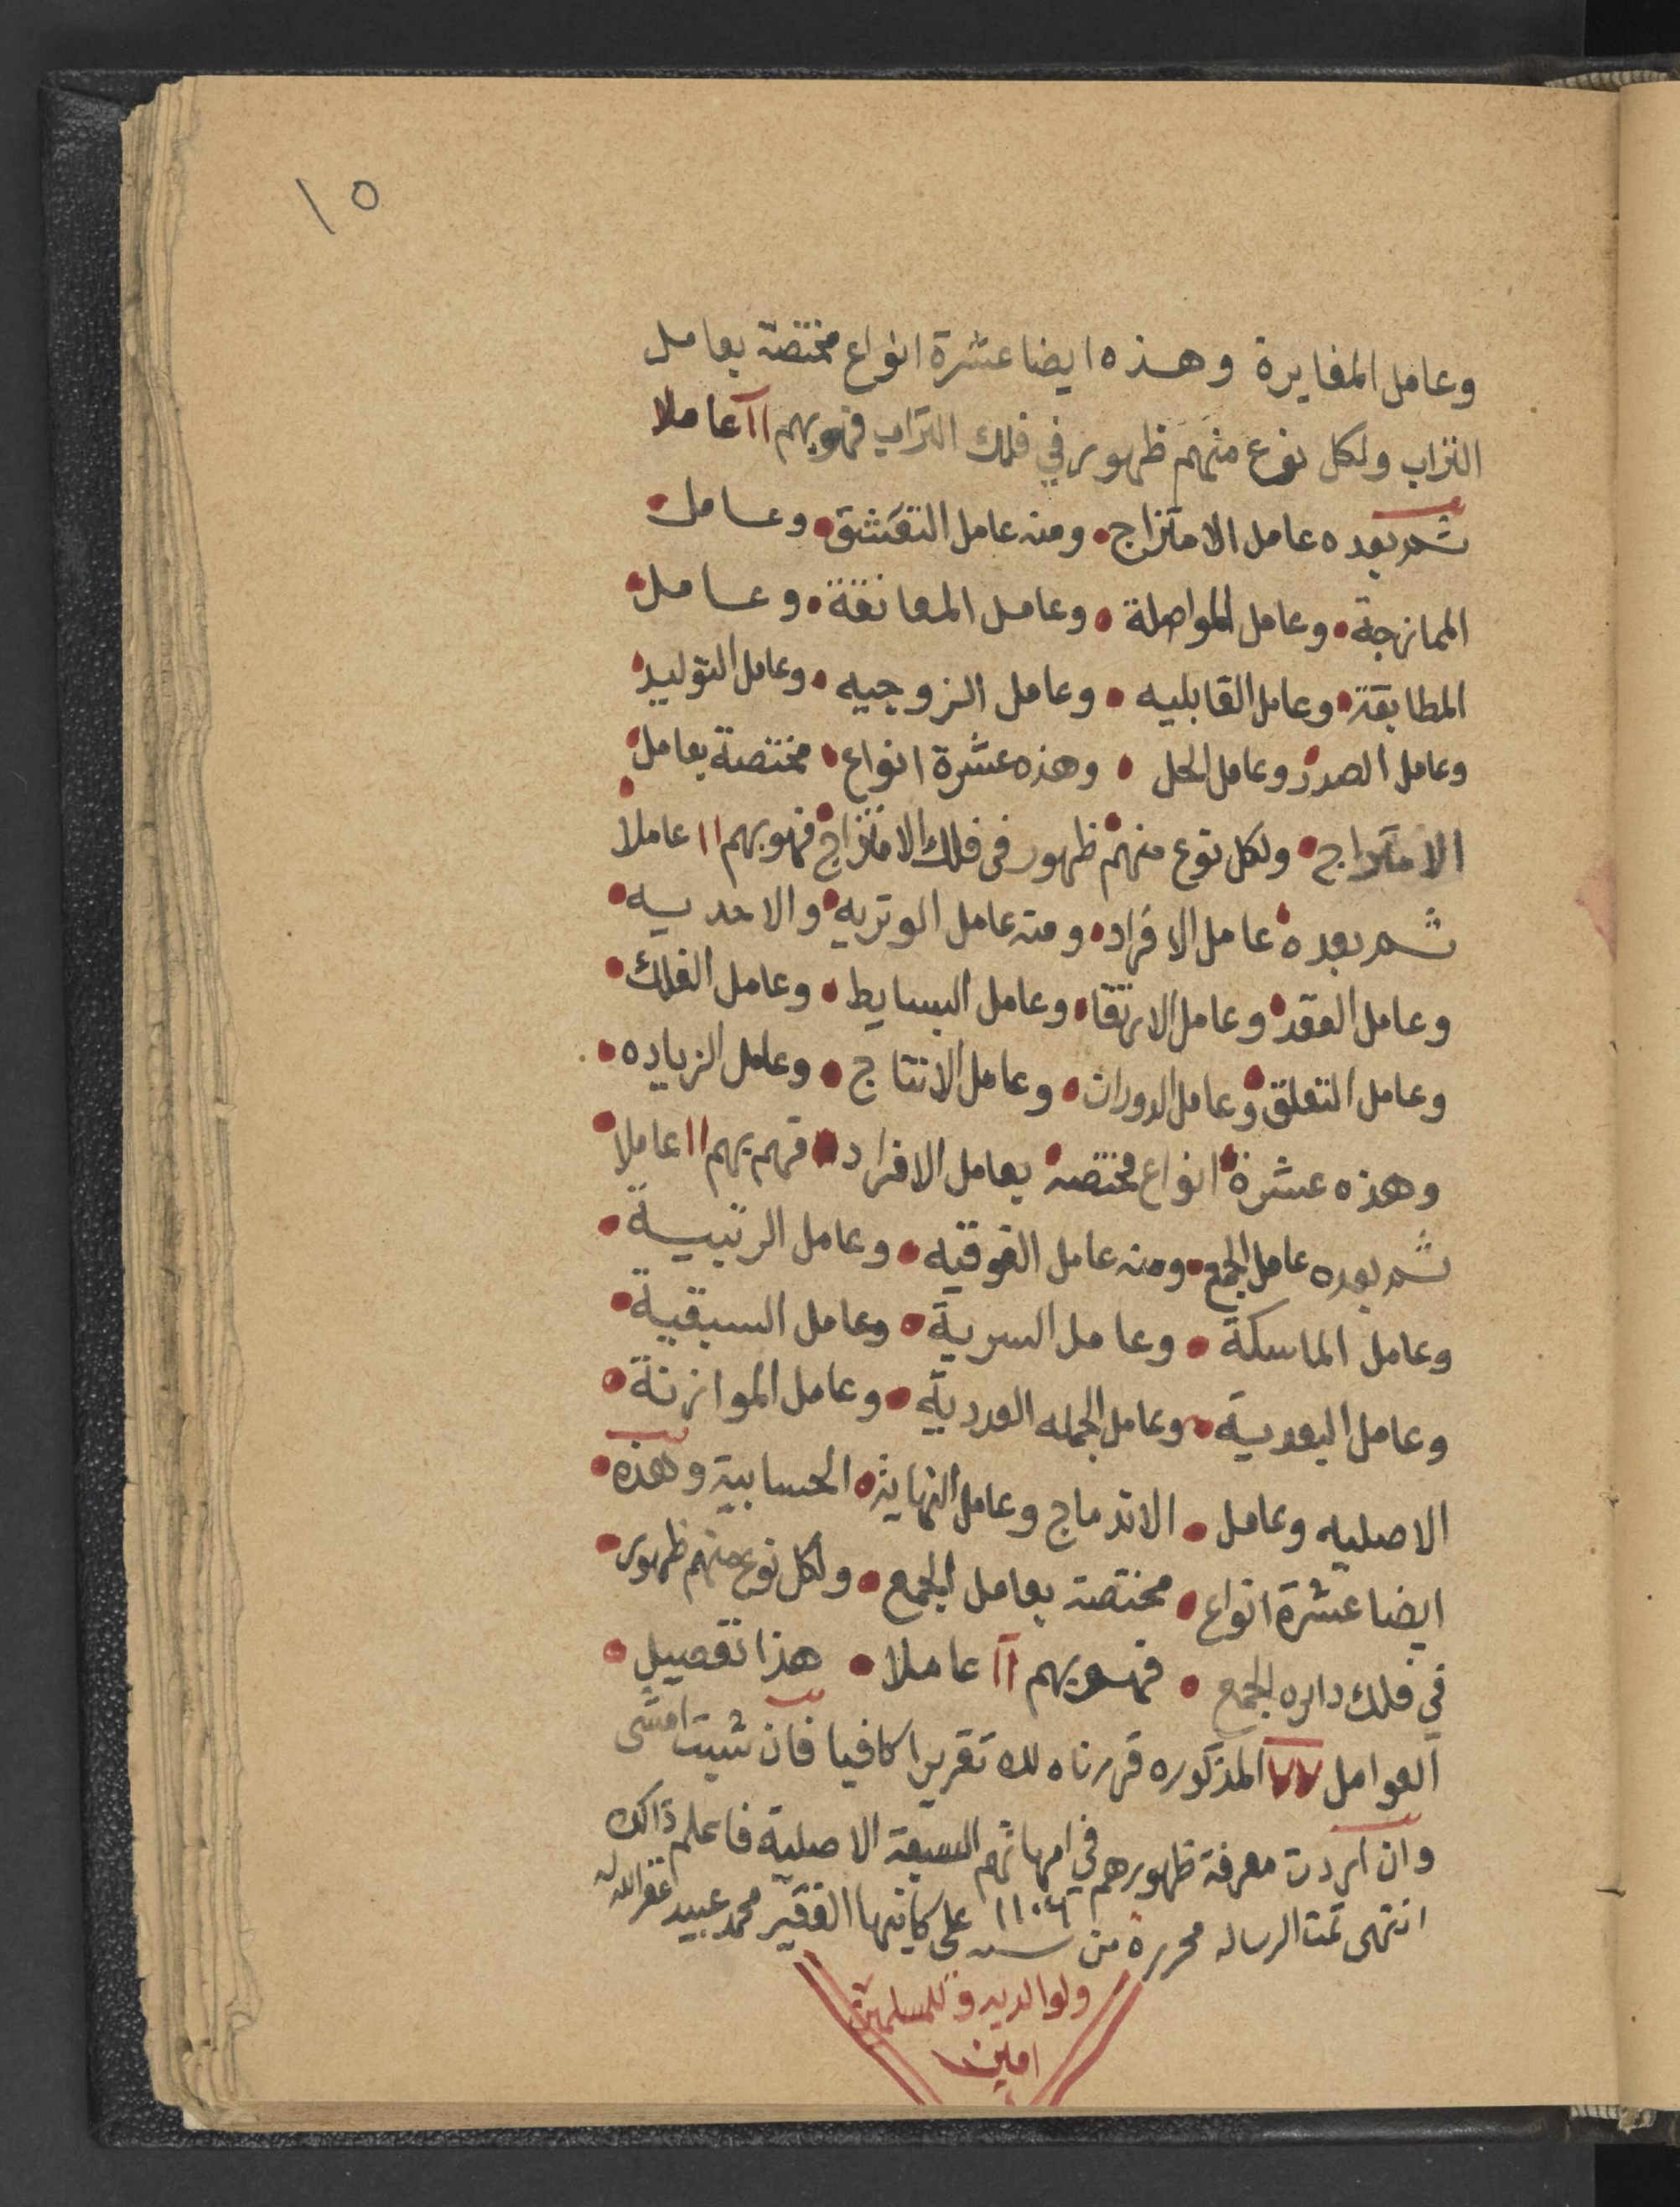 ١٥
وعامل المغايرة وهذه ايضا عشرة انواع مختصة بعامل
التراب ولكل نوع منهم ظهور في فلك التراب فهو بهم ١١ عاملا
ثم بعده عامل الامتزاج ومنه عامل التعشق وعامل
الممازجة وعامل المواصلة وعامل المعانقة وعامل
المطابقة وعامل القابليه وعامل الزوجيه وعامل التوليد
وعامل الصدر وعامل الحل وهذه عشرة انواع مختصة بعامل
الامتزاج ولكل نوع منهم ظهور في فلك الامتزاج فهو بهم ١١ عاملا
ثم بعده عامل الافراد ومنه عامل الوتريه والاحديه
وعامل العقد وعامل الارتقا وعامل البسايط وعامل الفلك
وعامل التعلق وعامل الدوران وعامل الانتاج وعامل الزياده
وهذه عشرة انواع مختصة بعامل الافراد فهم بهم ١١ عاملا
ثم بعده عامل الجمع ومنه عامل الفوقيه وعامل الرتبية
وعامل الماسكة وعامل السرية وعامل السبقية
وعامل البعدية وعامل الجمله العددية وعامل الموازنة
الاصليه وعامل الاندماج وعامل النهاية الحسابية وهذه
ايضا عشرة انواع مختصة بعامل الجمع ولكل نوع منهم ظهور
في فلك دايره الجمع فهو بهم ١١ عاملا هذا تفصيل
العوامل ٧٧ المذكوره قررناه لك تقريرا كافيا فان شيت امشى
وان اردت معرفة ظهورهم في امهاتهم السبعة الاصلية فاعلم ذالك
انتهى تمت الرساله محررة من سنه ١١٠٤ على كاتبها الفقير محمد عبيد غفر الله له
ولوالديه وللمسلمين
امين